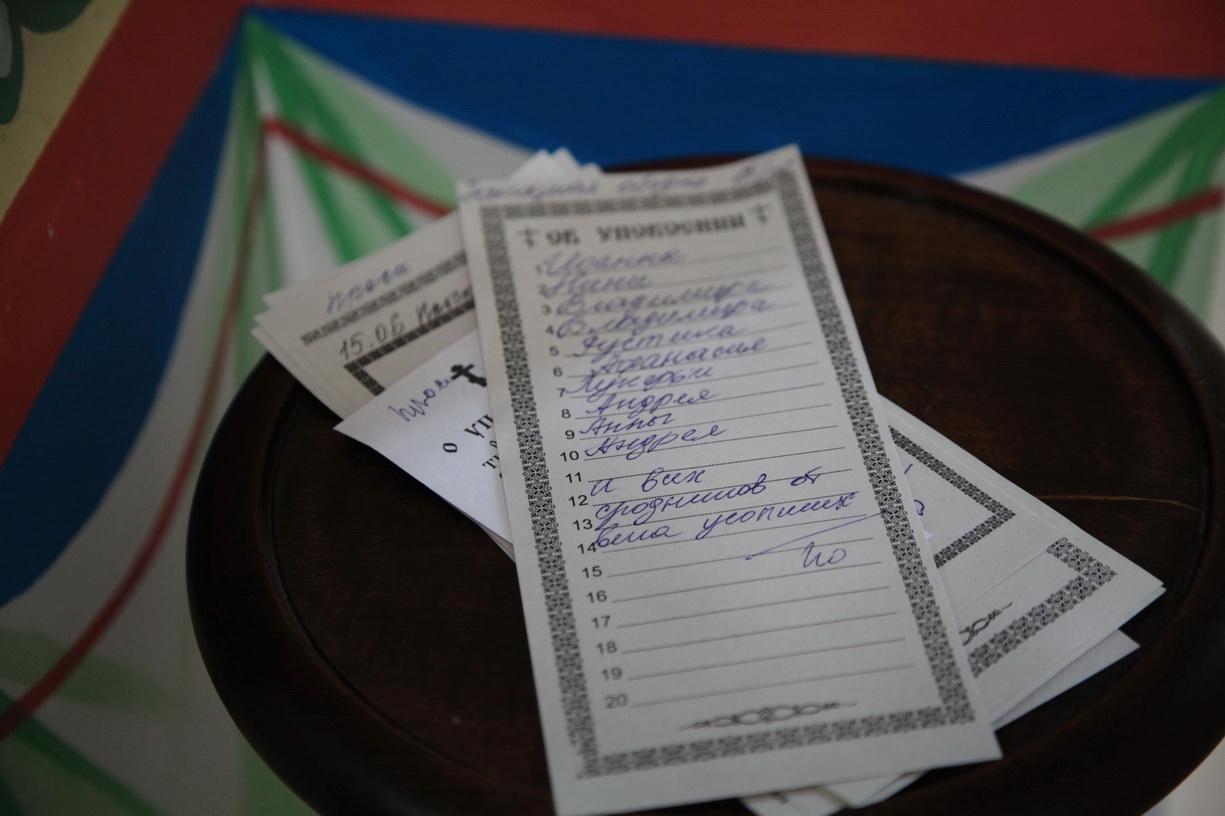 проси
15.06
Прос
О УП
обедня
ОБ УПОКОЕНИИ
1 Иоанна
2 Нины
3 Владимира
4 Владимира
5 Иустина
6 Афанасие
7
8 Андрея
9 Анны
10 Андрея
11
12 и всех
13 сродников от
14 века усопших
15
16
17
18
19
20